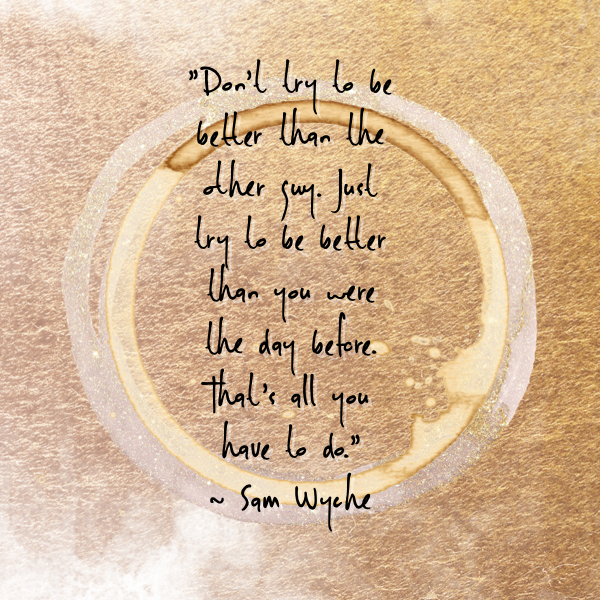 "Don't try to be
better than the
other guy. Just
try to be better
than you were
the day before.
That's all you
have to do."
~ Sam Wyche